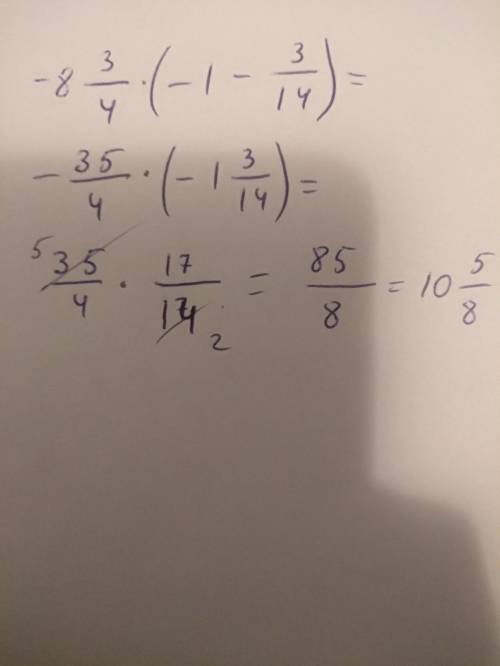 -8 3/4 · (-1 - 3/14) =
- 35/4 · (-1 3/14) =
5 35/4 · 17/14 2 = 85/8 = 10 5/8